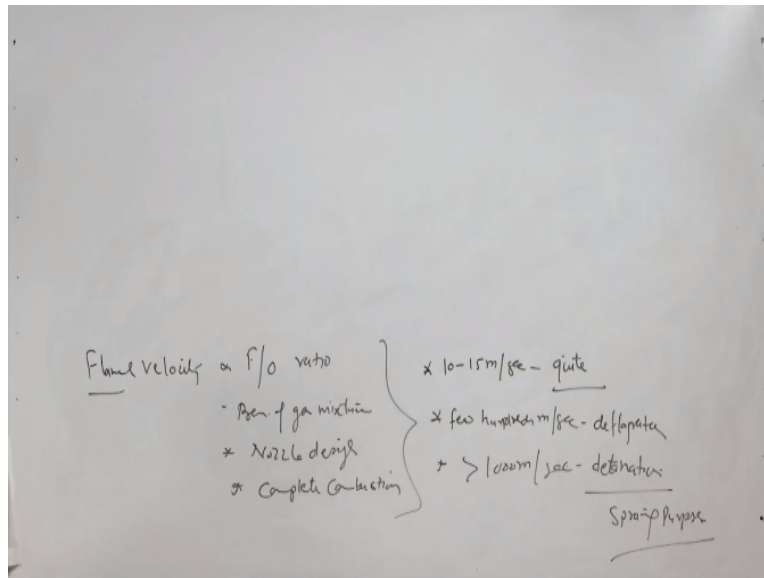 Flame velocity α F/O ratio
- Pres. of gas mixture
* Nozzle design
* Complete Combustion
* 10-15 m/sec - quite
* few hundred m/sec - deflagration
* >1000 m/sec - detonation
Spraying Purpose